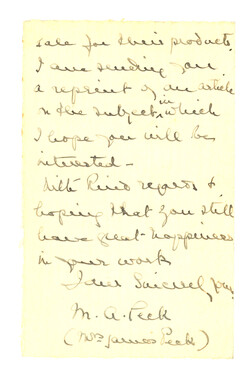 sale for their products.
I am sending you
a reprint of an article
on the subject, in which
I hope you will be
interested -
With kind regards &
hoping that you still
have great happiness
in your work
Yours Sincerely,
M. A. Peck
(Mrs James Peck)